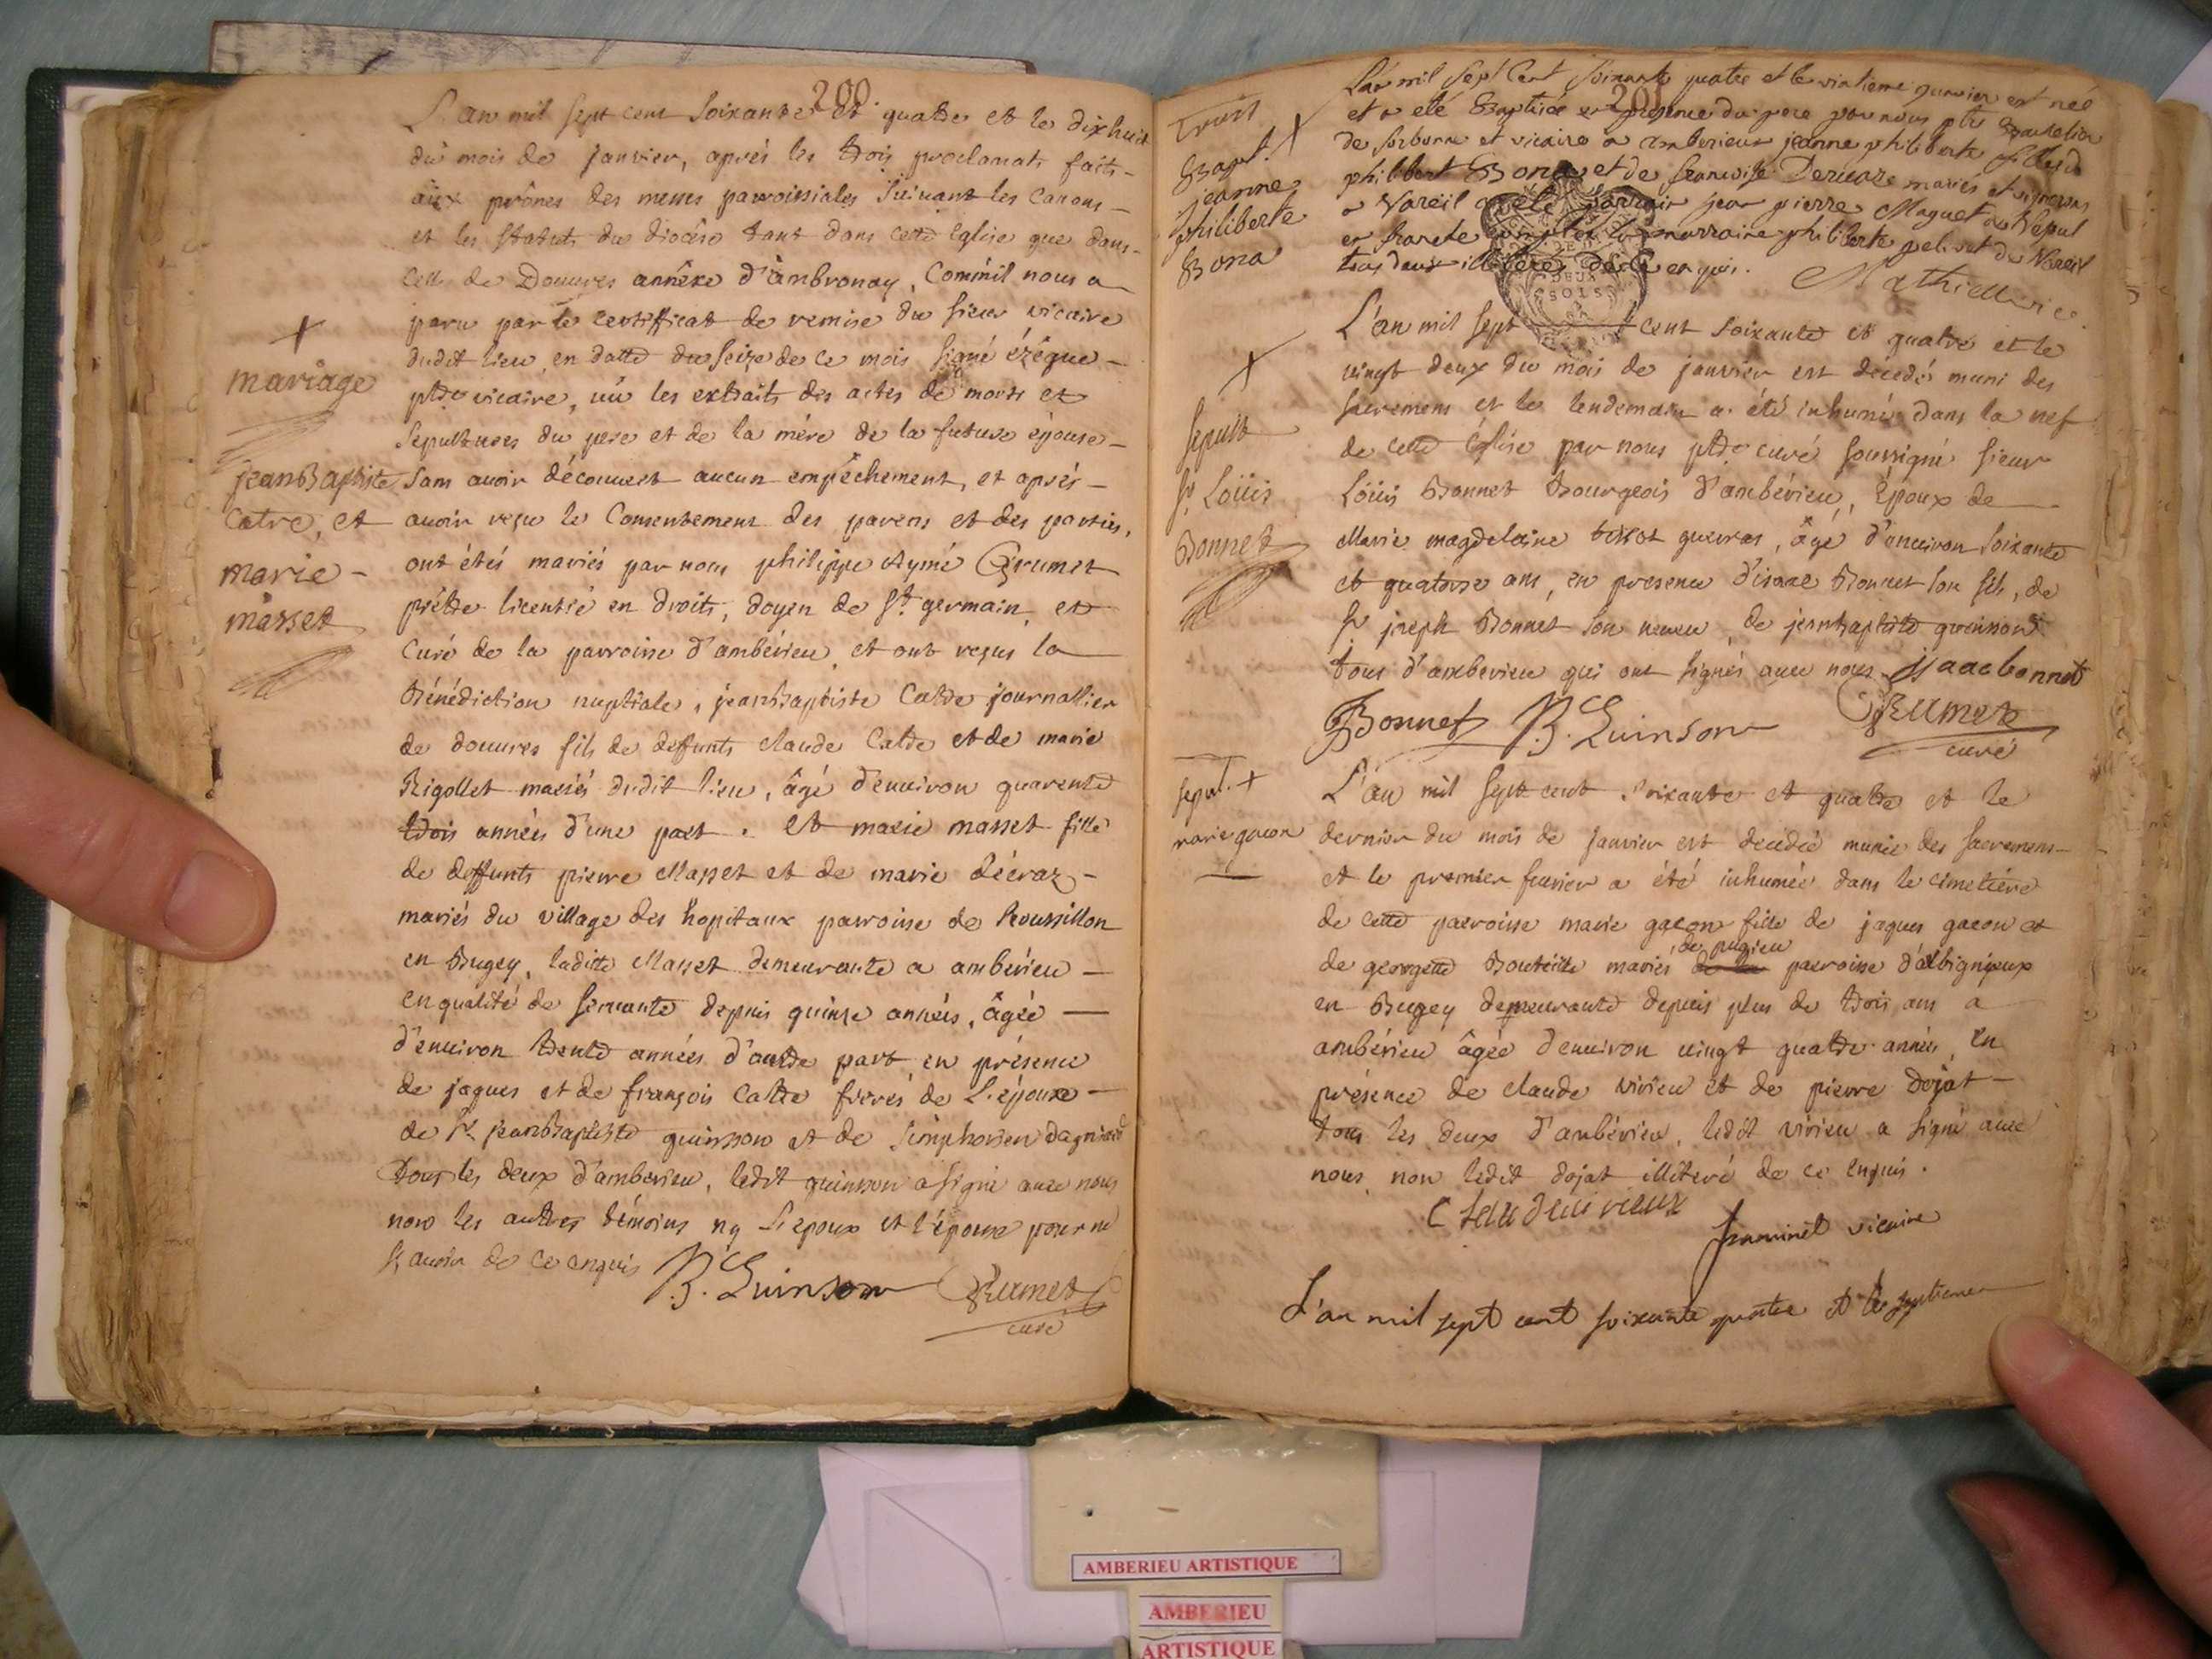 200
L'an mil sept cent soixante et quatre et le dixhuit
du mois de janvier, aprés les trois proclamats faits
aux prônes des messes parroissiales suivant les canons
et les statuts du diocése tant dans cette église que dans
celle de Douvres annéxe d'ambronay, comm'il nous a
paru par le certifficat de remise du sieur vicaire
dudit lieu, en datte du seize de ce mois signé ézéque
ptre vicaire, vû les extraits des actes de morts et
sepultures du pere et de la mére de la future épouse
sans avoir découvert aucun empéchement, et aprés
avoir reçu le consentement des parens et des parties,
ont étés mariés par nous philippe Aymé Grumet
prétre licentié en droits, doyen de St. germain, et
curé de la parroisse d'ambérieu, et ont reçus la
Bénédiction nuptiale, jeanBaptiste Catre journallier
de douvres fils de deffunts claude Catre et de marie
Rigollet mariés dudit lieu, âgé d'environ quarente
trois années d'une part. Et marie masset fille
de deffunts pierre Masset et de marie déeraz
mariés du village des hopitaux parroisse de Roussillon
en Bugey, laditte Masset demeurante a ambérieu
en qualité de servante depuis quinze années, âgée
d'environ trente années d'autre part, en présence
de jaques et de françois Catre freres de l'épouse
de Sr. jeanBaptiste quinsson et de simphorien dagniard
tous les deux d'amberieu, ledit quinsson a signé avec nous
non les autres témoins ny l'epoux et l'épouse pour ne
sçavoir de ce enquis B. Quinson Grumet
curé
mariage
jeanBaptiste
Catre, et
marie
masset
201
L'an mil sept cent soixante quatre et le vintieme janvier est née
et a eté Baptisée en presence du pere par nous ptre Bachelier
de sorbonne et vicaire a amberieux jeanne philiberte fille de
philibert Bona et de francoise Derieaz mariés et vignerons
a Vareil a eté parrain jean pierre Maguet de
marraine philiberte pelisset de Vareil
tous deux illiteres de ce enquis. Mathieu vic
Bapt.
jeanne
philiberte
Bona
L'an mil sept cent soixante et quatre et le
vingt deux du mois de janvier est décedé muni des
sacremens et le lendemain a été inhumé dans la nef
de cette église par nous ptre curé soussigné sieur
Loüis Bonnet Bourgeois d'ambérieu, époux de
Marie magdelaine tissot gueuras, âgé d'environ soixante
et quatorse ans, en presence d'isaac Bonnet son fils, de
Sr joseph Bonnet son neveu, de jeanbaptiste quinsson
tous d'amberieu qui ont signés avec nous. isaac bonnet
Bonnet B. Quinson Grumet
curé
sepult
Sr. Loüis
Bonnet
L'an mil sept cent soixante et quatre et le
dernier du mois de janvier est decedée munie des sacremens
et le premier fevrier a été inhumée dans le cimetiére
de cette parroisse marie gacon fille de jaques gacon et
de pugieu
de georgette Bouteille mariés de la parroisse d'albignieux
en Bugey demeurante depuis plus de trois ans a
ambérieu âgée d'environ vingt quatre années, en
présence de claude vivieu et de pierre dojat
tous les deux d'ambérieu, ledit vivieu a signé avec
nous, non ledit dojat illiteré de ce enquis.
Claude vivieux
vicaire
sepul.
marie gacon
L'an mil sept cent soixante quatre et le septieme
AMBERIEU ARTISTIQUE
AMBERIEU
ARTISTIQUE